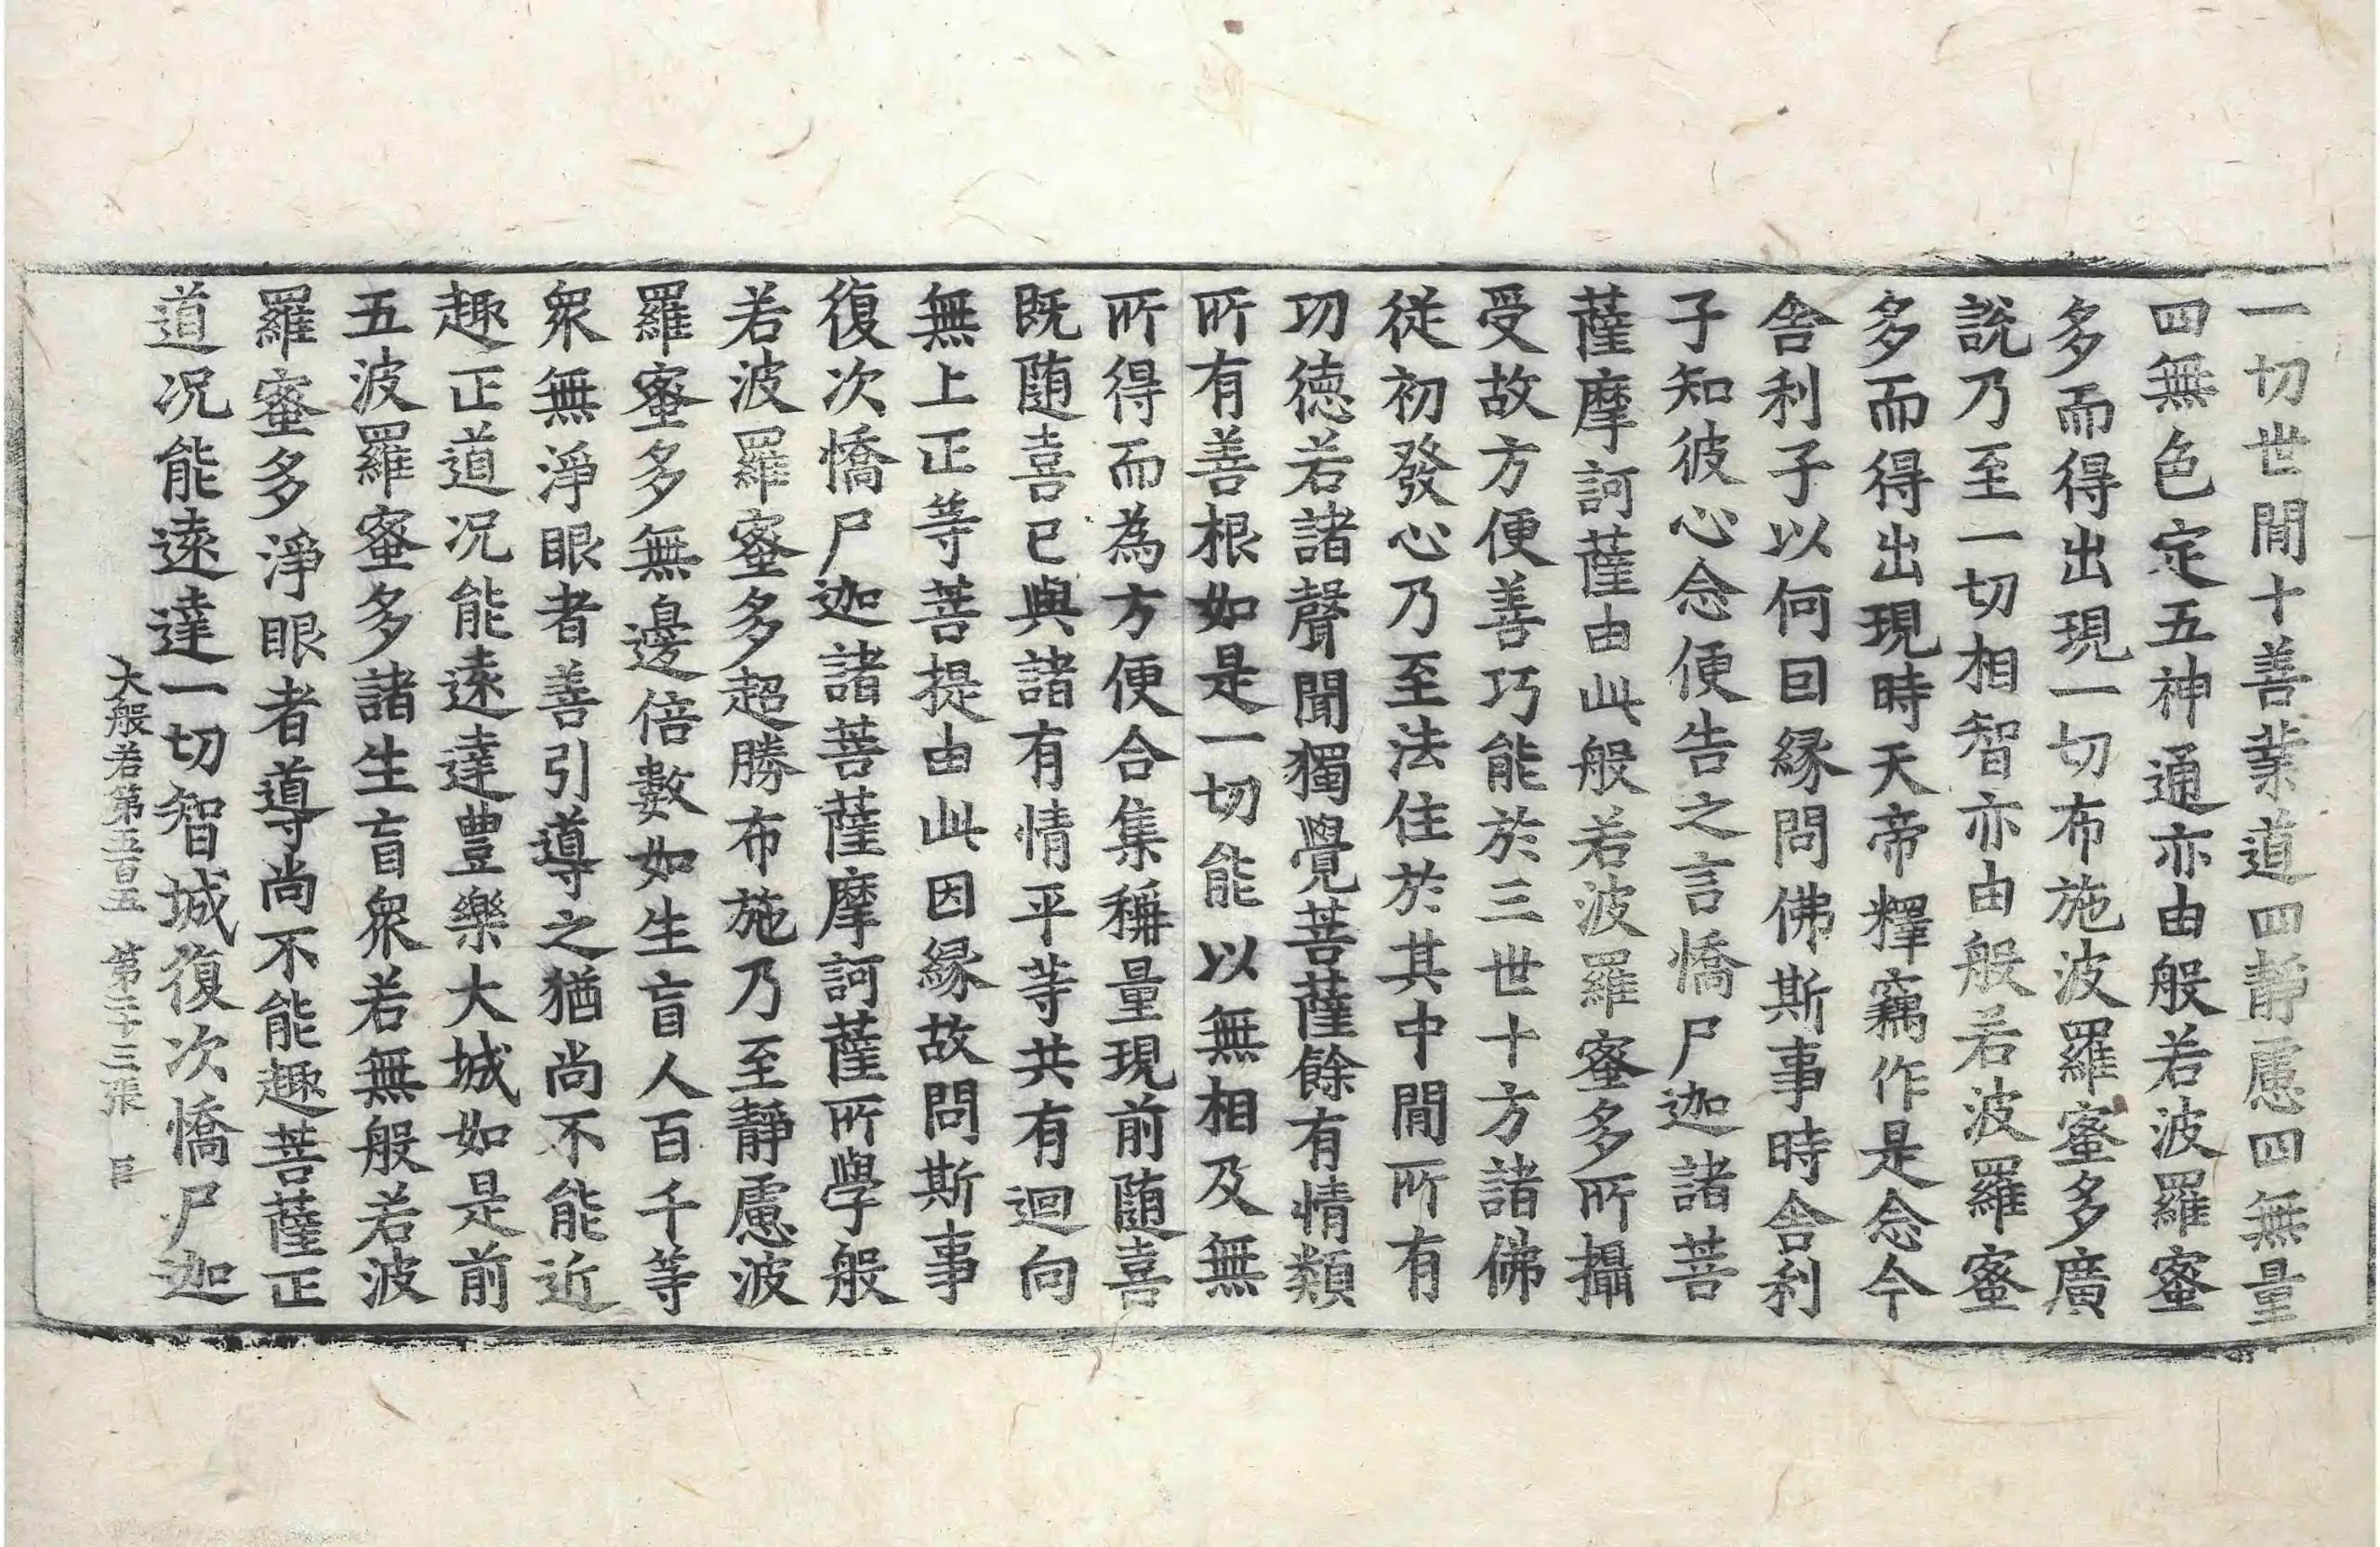 一切世間十善業道四靜慮四無量
四無色定五神通亦由般若波羅蜜
多而得出現一切布施波羅蜜多廣
說乃至一切相智亦由般若波羅蜜
多而得出現時天帝釋竊作是念今
舍利子以何因緣問佛斯事時舍利
子知彼心念便告之言憍尸迦諸菩
薩摩訶薩由此般若波羅蜜多所攝
受故方便善巧能於三世十方諸佛
從初發心乃至法住於其中間所有
功德若諸聲聞獨覺菩薩餘有情類
所有善根如是一切能以無相及無
所得而為方便合集稱量現前随喜
既随喜已與諸有情平等共有迴向
無上正等菩提由此因緣故問斯事
復次憍尸迦諸菩薩摩訶薩所學般
若波羅蜜多超勝布施乃至靜慮波
羅蜜多無邊倍數如生盲人百千等
衆無淨眼者善引導之猶尚不能近
趣正道况能遠達豊樂大城如是前
五波羅蜜多諸生盲衆若無般若波
羅蜜多淨眼者導尚不能趣菩薩正
道况能遠達一切智城復次憍尸迦
大般若第五百五 第二十三張